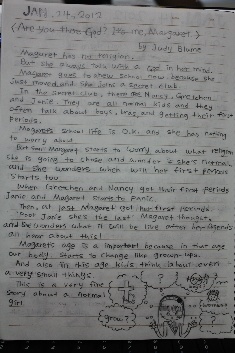 JAN. 24th, 2012
<Are you there God? It's me, Margaret.>
by Judy Blume
Margaret has no religion.
But she always talk with a God in her mind.
Margaret goes to new school now because she
just moved and she joins a secret club.
In the secret club, there are Nancy, Gretchen
and Janie. They are all normal kids and they
often talk about boys, bras, and getting their first
periods.
Margaret's school life is O.K. and she has nothing
to worry about.
But soon Margaret starts to worry about what religion
she is going to chose and wonder is she's normal.
and she wonders when will her first periods
starts too.
When Gretchen and Nancy got their first periods
Janie and Margaret starts to Panic.
Then, at last Margaret got her first periods.
"Poor Janie she's the last" Margaret thought,
and she wonders what it will be like after her friends
all know about this!
Margaret's age is a important because in that age
our body starts to change like grown ups.
And also in this age kids think about even
a very small things.
This is a very fine
story about a normal
girl.
grow?